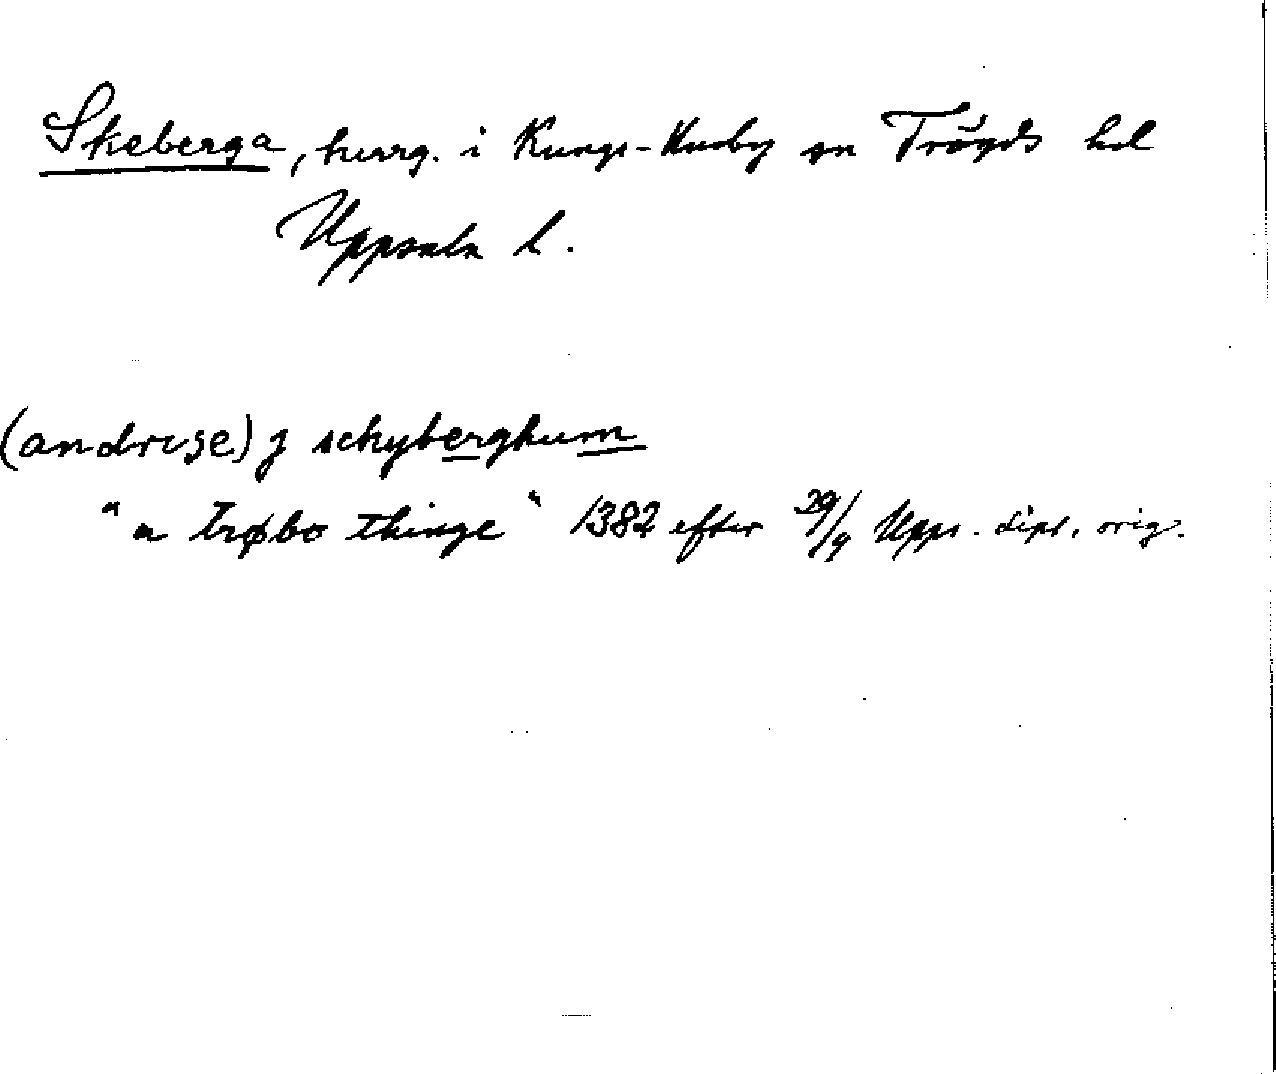 Skeberga, herrg. i Kungs-Husby sn Trögds hd
Uppsala l.
(andrise) j schyberghum
"a trøbo thinge" 1382 efter 29/9 Upps. dipl. orig.